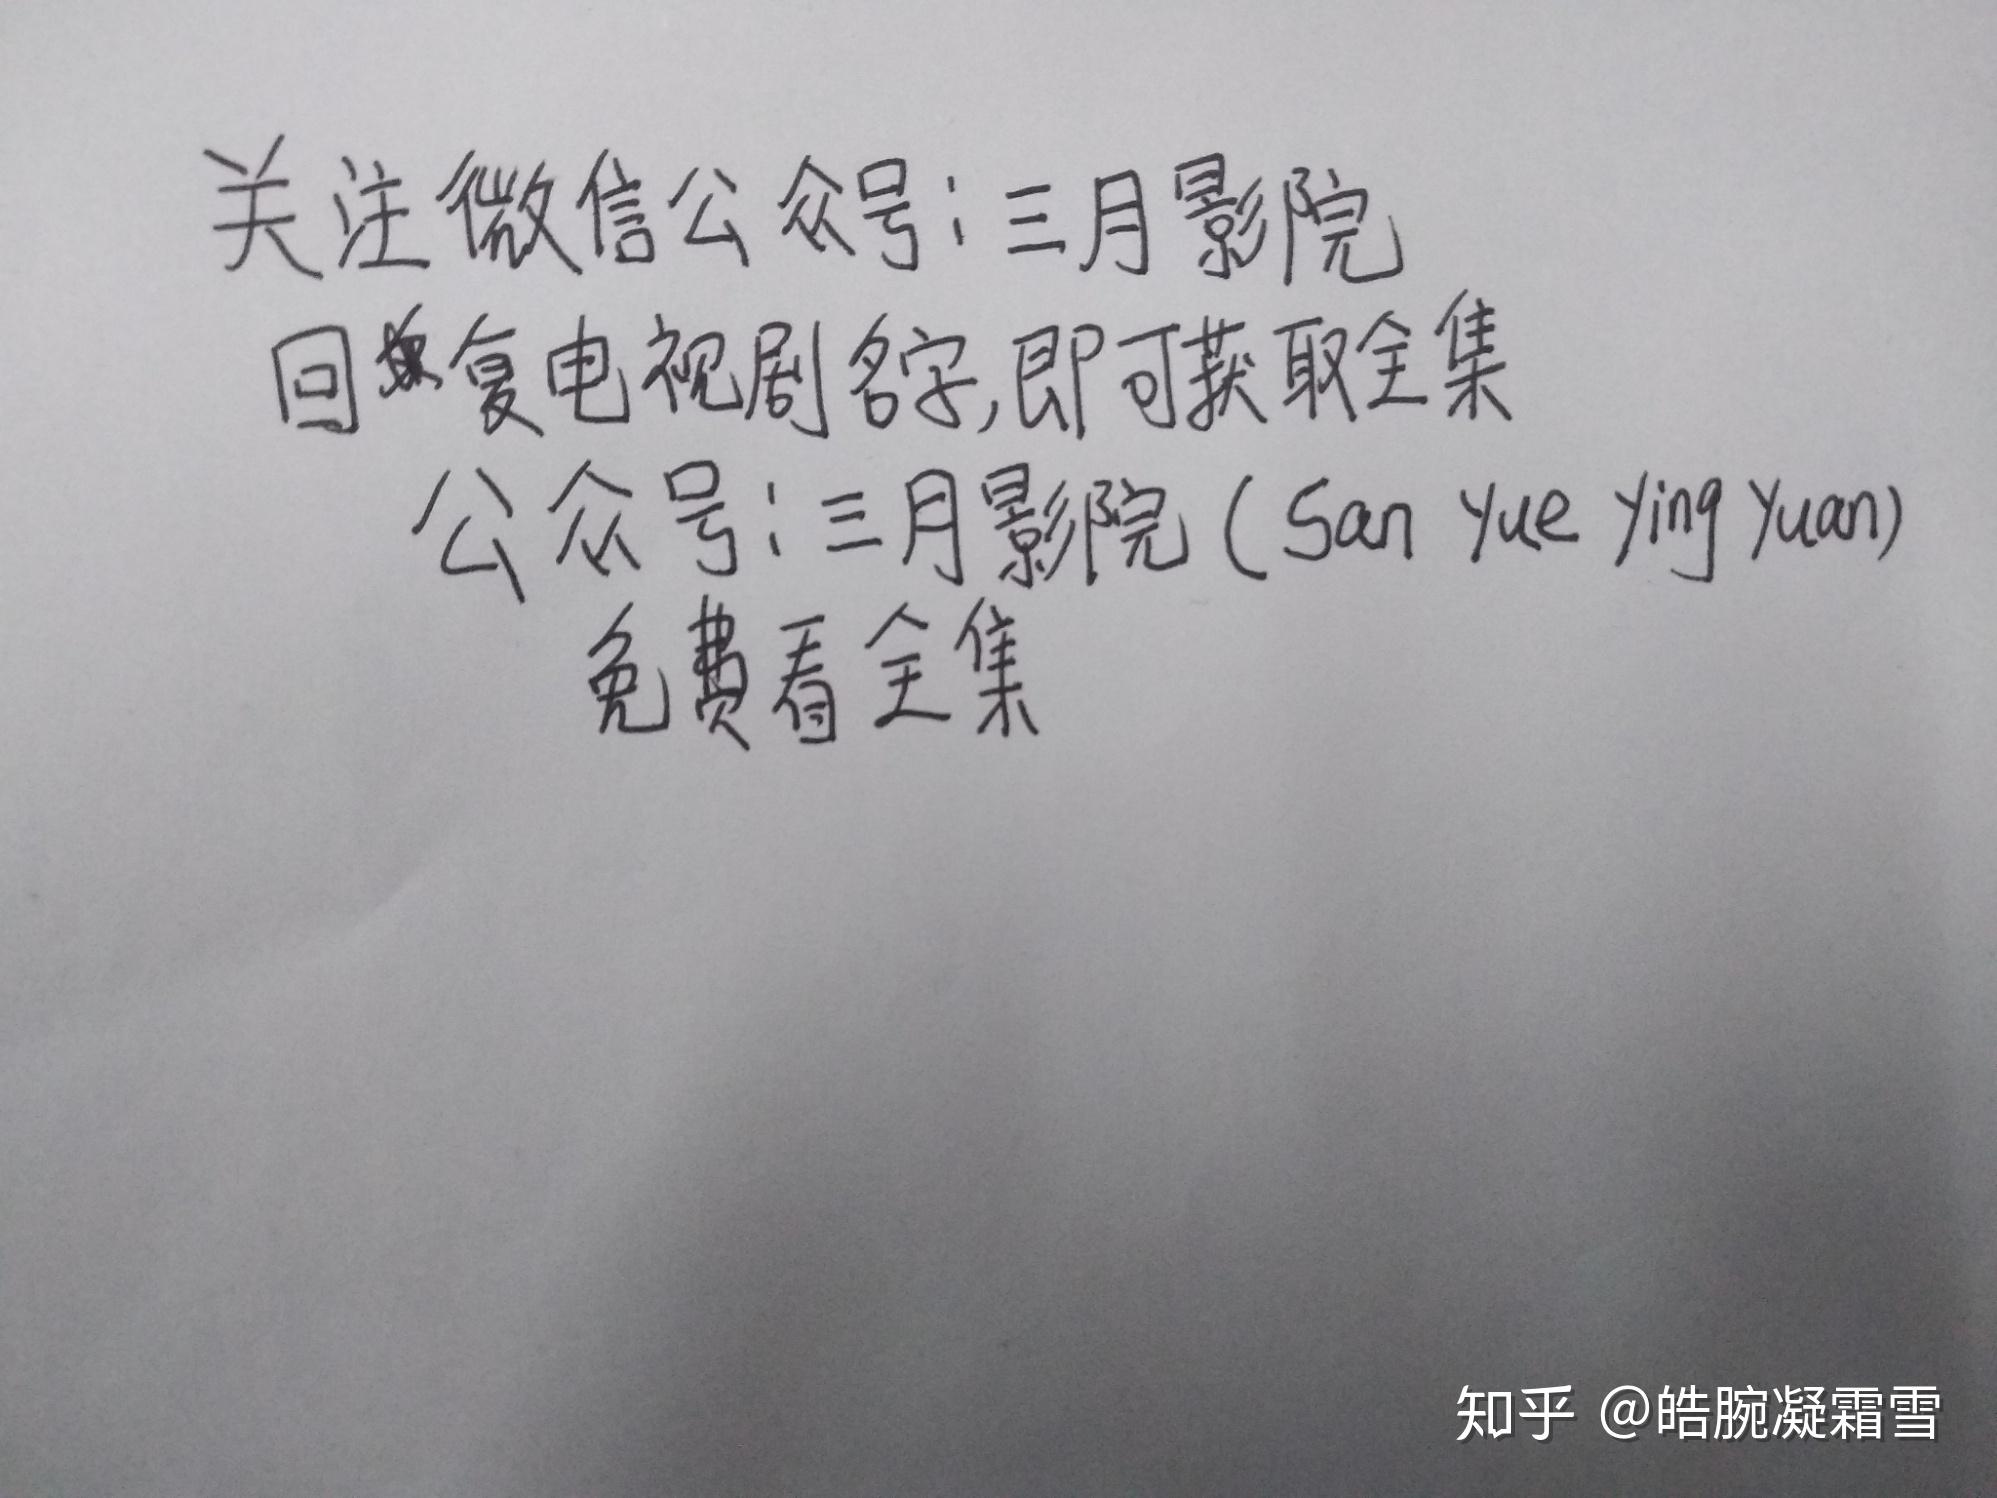 关注微信公众号:三月影院
回复电视剧名字,即可获取全集
公众号:三月影院(San Yue Ying Yuan)
免费看全集
知乎 @皓腕凝霜雪